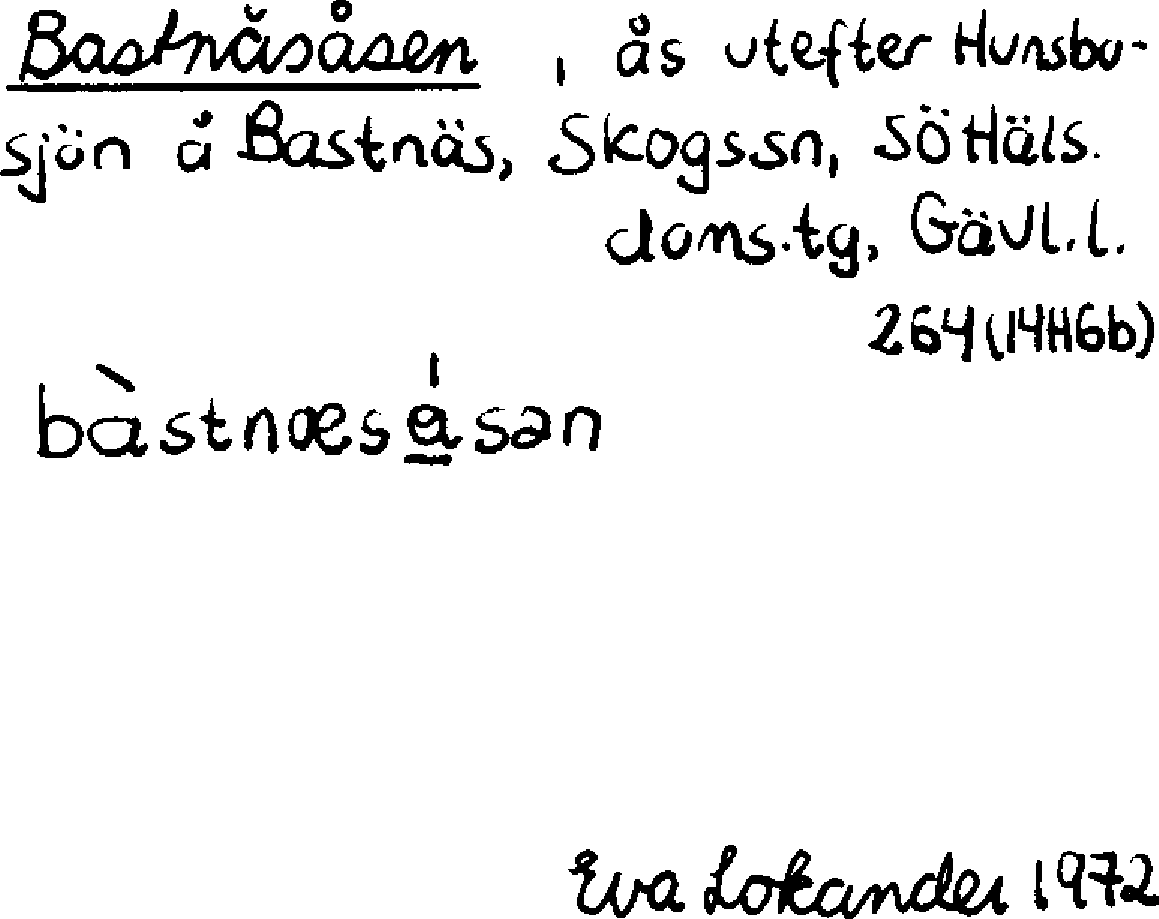 Bastnäsåsen, ås utefter Hunsbo-
sjön å Bastnäs, Skogssn, SöHäls.
doms.tg, Gävl.l.
264 (14H6b)
bàstnæsåsən
Eva Lokander 1972